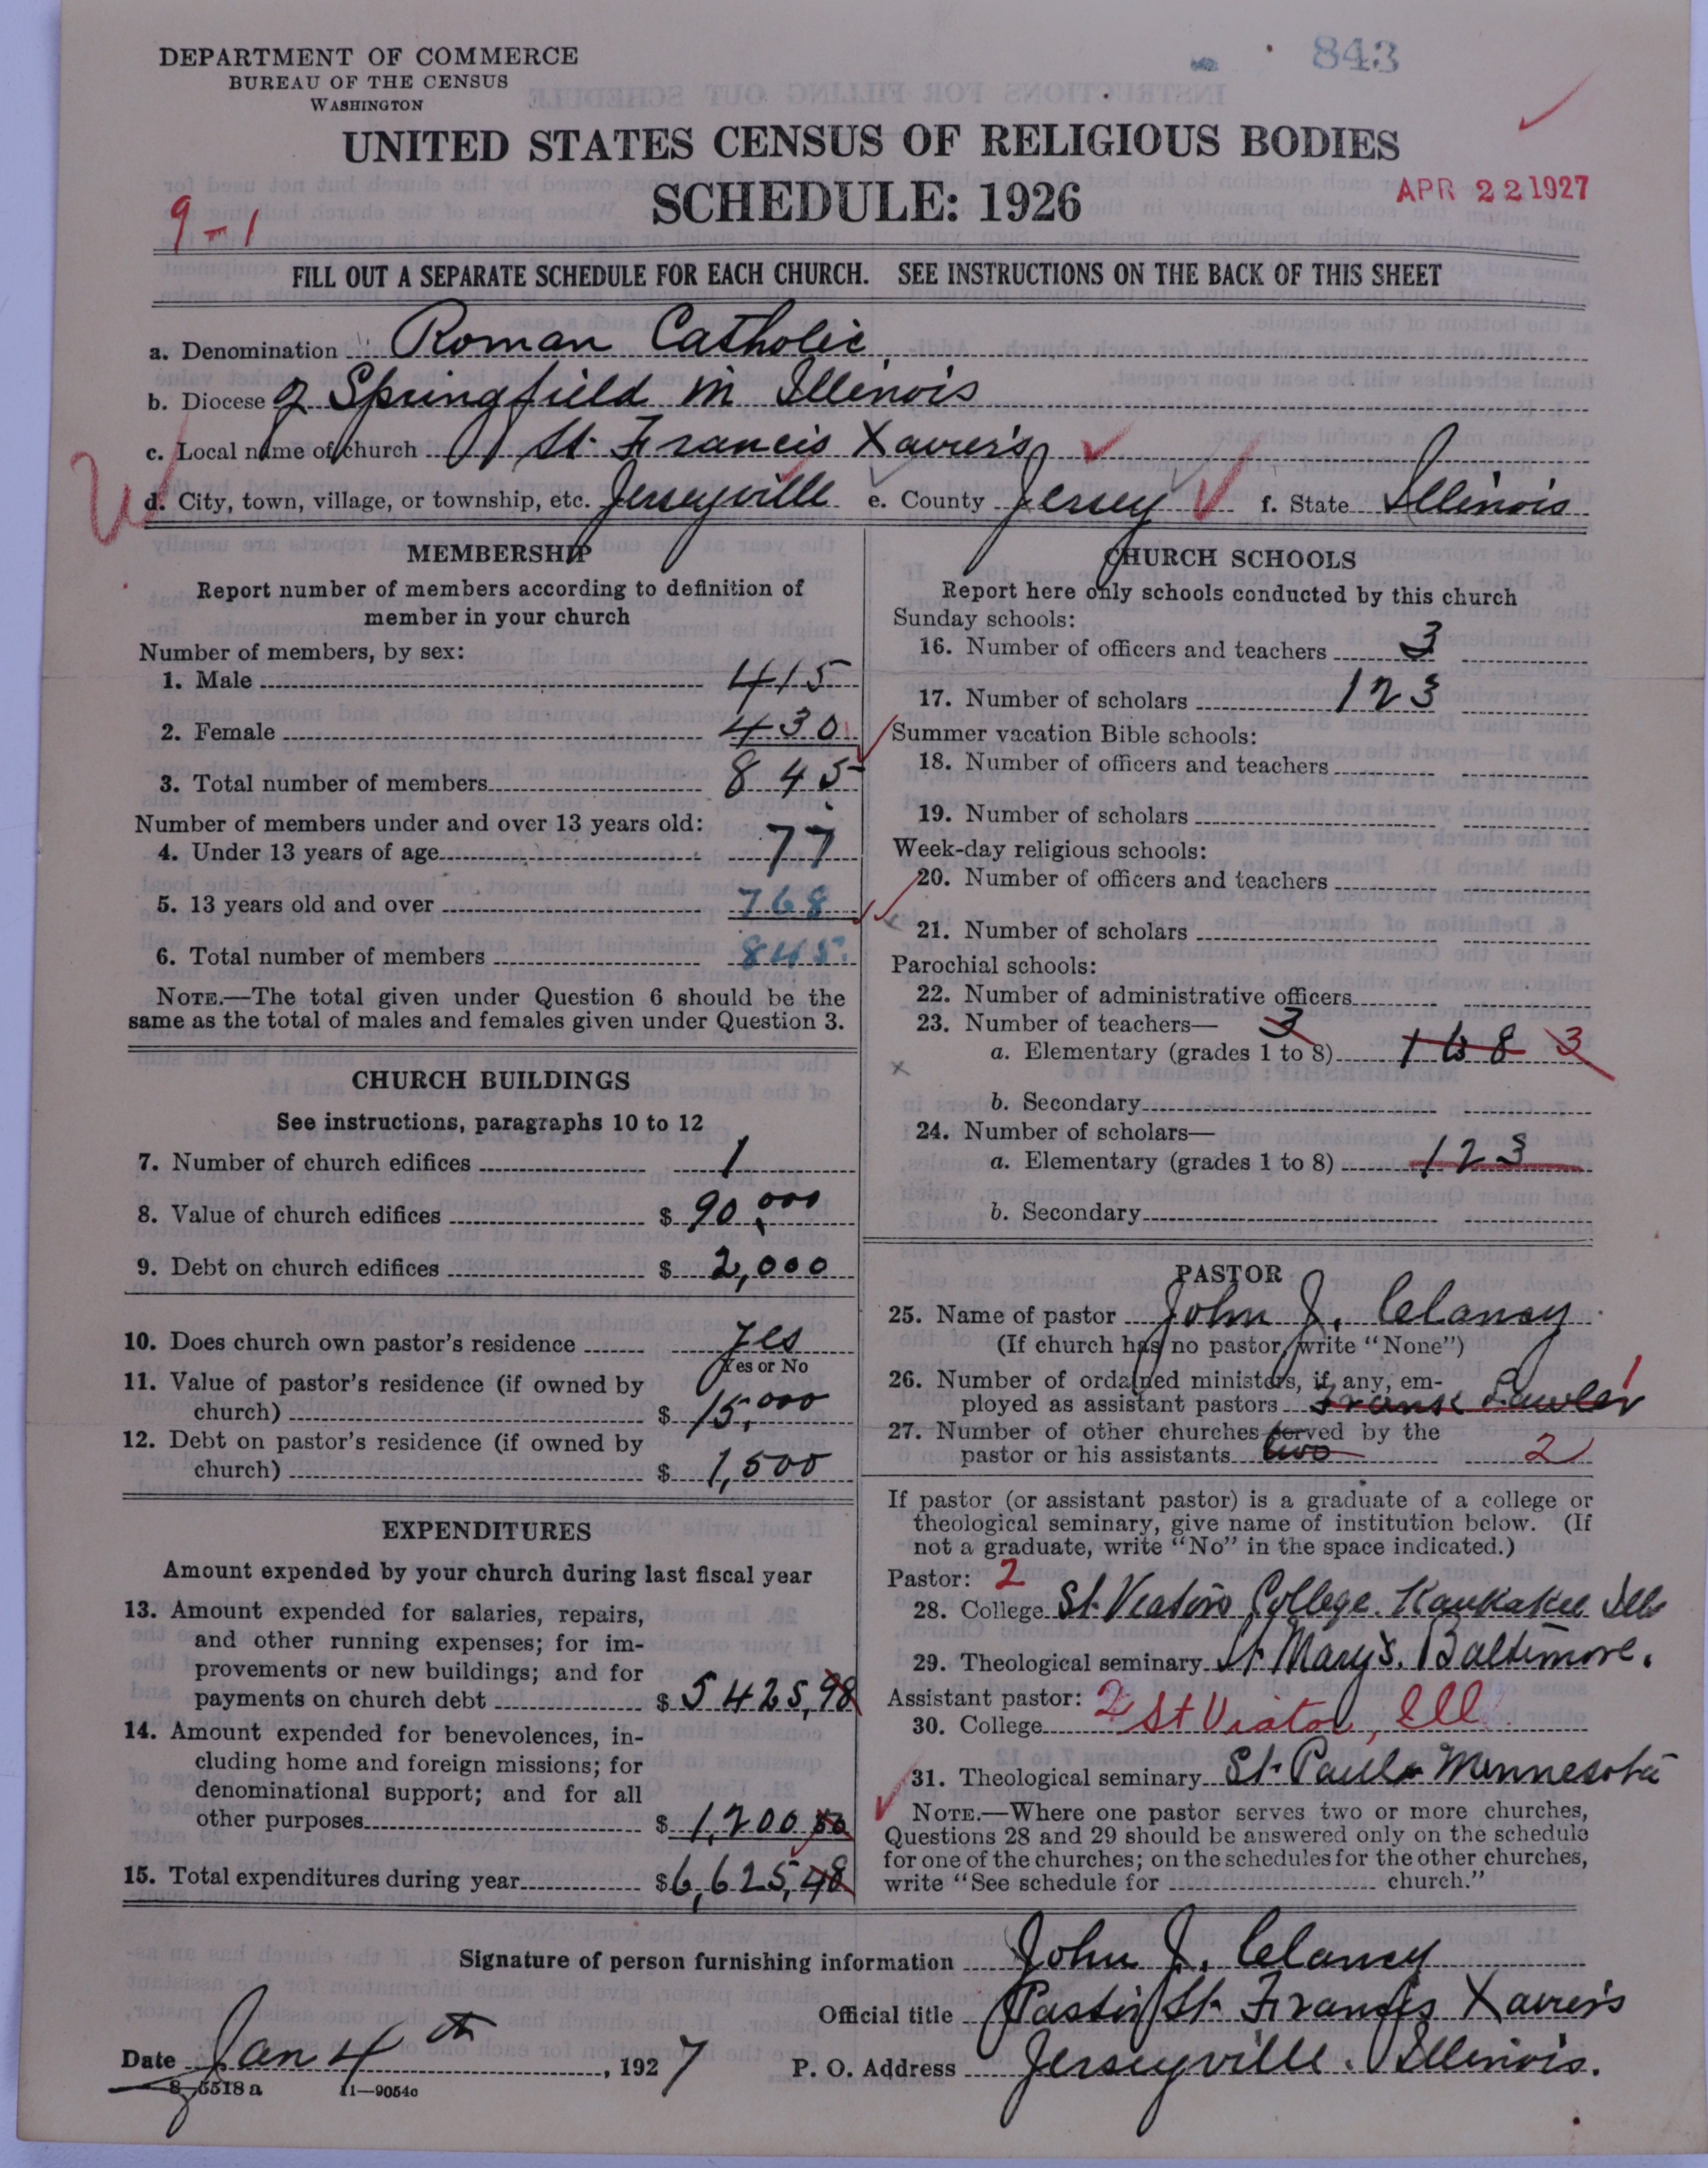 843
DEPARTMENT OF COMMERCE
BUREAU OF THE CENSUS
WASHINGTON
UNITED STATES CENSUS OF RELIGIOUS BODIES
SCHEDULE: 1926
APR 22 1927
9-1
FILL OUT A SEPARATE SCHEDULE FOR EACH CHURCH. SEE INSTRUCTIONS ON THE BACK OF THIS SHEET
a. Denomination Roman Catholic
b. Diocese of Springfield in Illinois
c. Local name of church St. Francis Xavier's
d. City, town, village, or township, etc. Jerseyville e. County Jersey f. State Illinois
MEMBERSHIP
Report number of members according to definition of
member in your church
Number of members, by sex:
1. Male 415
2. Female 430
3. Total number of members 845
Number of members under and over 13 years old:
4. Under 13 years of age 77
5. 13 years old and over 768
6. Total number of members 845
NOTE.—The total given under Question 6 should be the
same as the total of males and females given under Question 3.
CHURCH BUILDINGS
See instructions, paragraphs 10 to 12
7. Number of church edifices 1
8. Value of church edifices $ 90,000
9. Debt on church edifices $ 2,000
10. Does church own pastor's residence Yes
Yes or No
11. Value of pastor's residence (if owned by
church) $ 15,000
12. Debt on pastor's residence (if owned by
church) $ 1,500
EXPENDITURES
Amount expended by your church during last fiscal year
13. Amount expended for salaries, repairs,
and other running expenses; for im-
provements or new buildings; and for
payments on church debt $ 5425,98
14. Amount expended for benevolences, in-
cluding home and foreign missions; for
denominational support; and for all
other purposes $ 1,200
15. Total expenditures during year $ 6,625,98
CHURCH SCHOOLS
Report here only schools conducted by this church
Sunday schools:
16. Number of officers and teachers 3
17. Number of scholars 123
Summer vacation Bible schools:
18. Number of officers and teachers
19. Number of scholars
Week-day religious schools:
20. Number of officers and teachers
21. Number of scholars
Parochial schools:
22. Number of administrative officers
23. Number of teachers— 3
a. Elementary (grades 1 to 8) 1 to 8 3
b. Secondary
24. Number of scholars—
a. Elementary (grades 1 to 8) 123
b. Secondary
PASTOR
25. Name of pastor John J. Clancy
(If church has no pastor, write "None")
26. Number of ordained ministers, if any, em-
ployed as assistant pastors Frank Lawler 1
27. Number of other churches served by the
pastor or his assistants two 2
If pastor (or assistant pastor) is a graduate of a college or
theological seminary, give name of institution below. (If
not a graduate, write "No" in the space indicated.)
Pastor: 2
28. College St. Viators College. Kankakee Ills
29. Theological seminary St Mary's. Baltimore.
Assistant pastor: 2
30. College St Viator, Ill
31. Theological seminary St. Paul Minnesota
NOTE.—Where one pastor serves two or more churches,
Questions 28 and 29 should be answered only on the schedule
for one of the churches; on the schedules for the other churches,
write "See schedule for church."
Signature of person furnishing information John J. Clancy
Official title Pastor St. Francis Xavier's
Date Jan 4th, 1927 P. O. Address Jerseyville. Illinois.
8-5518a 11—9054c